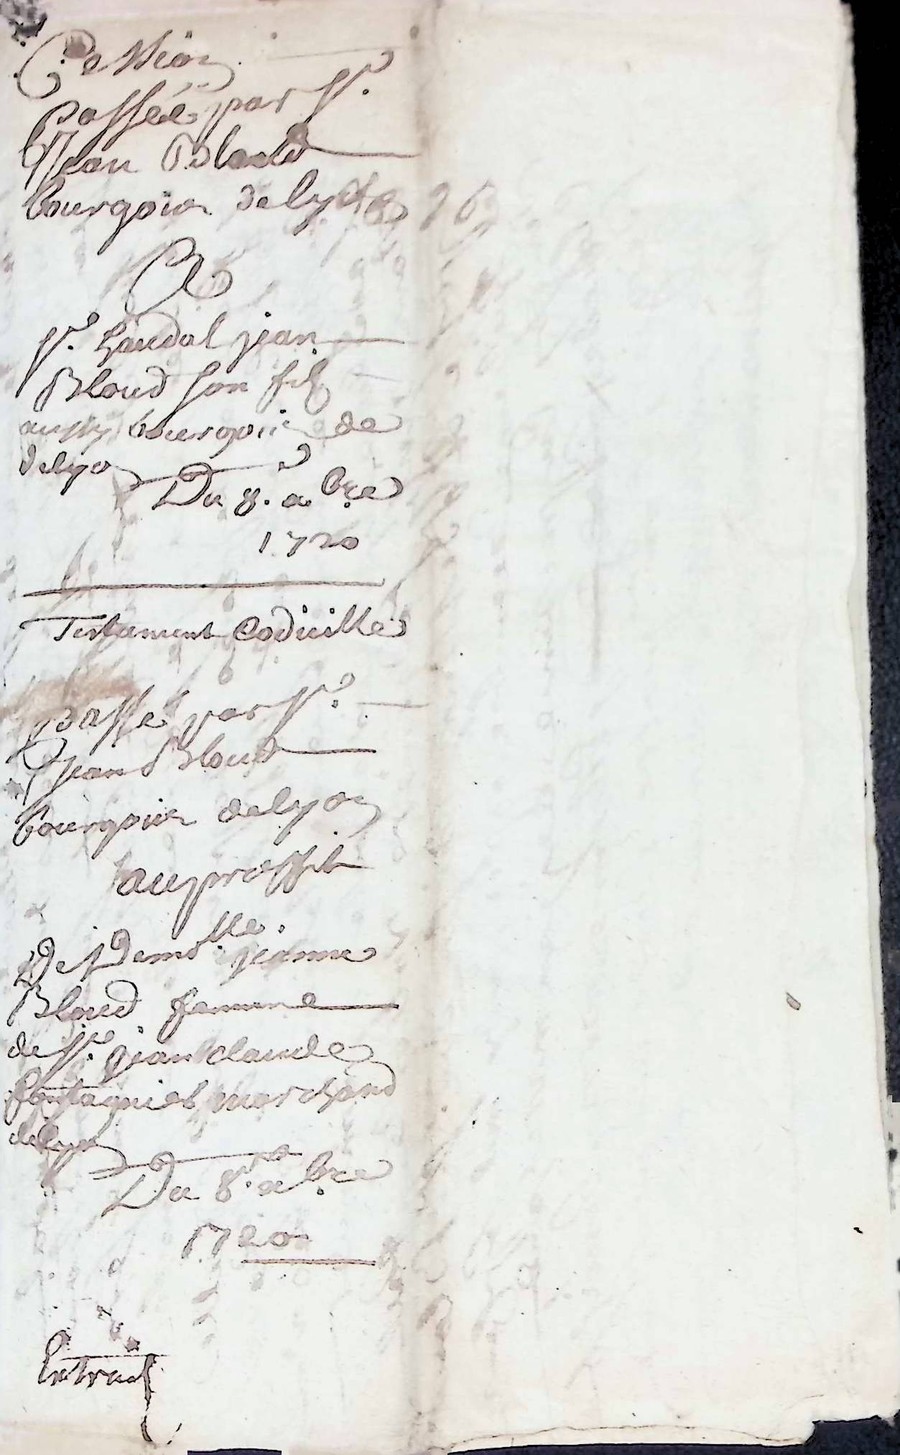 Cession
Passée par Sr.
Jean Bloud
bourgois de lyon
A
Sr. jean
Bloud son fils
aussy bourgois de
de lyon
Du 8. a bre
1720
Testament Codicille
Passé par Sr.
Jean Bloud
bourgois de lyon
au proffit
De Demolle. jeanne
Bloud femme
de Sr. jean claude
marchand
de lyon
Du 8. a bre
1720
Extrait